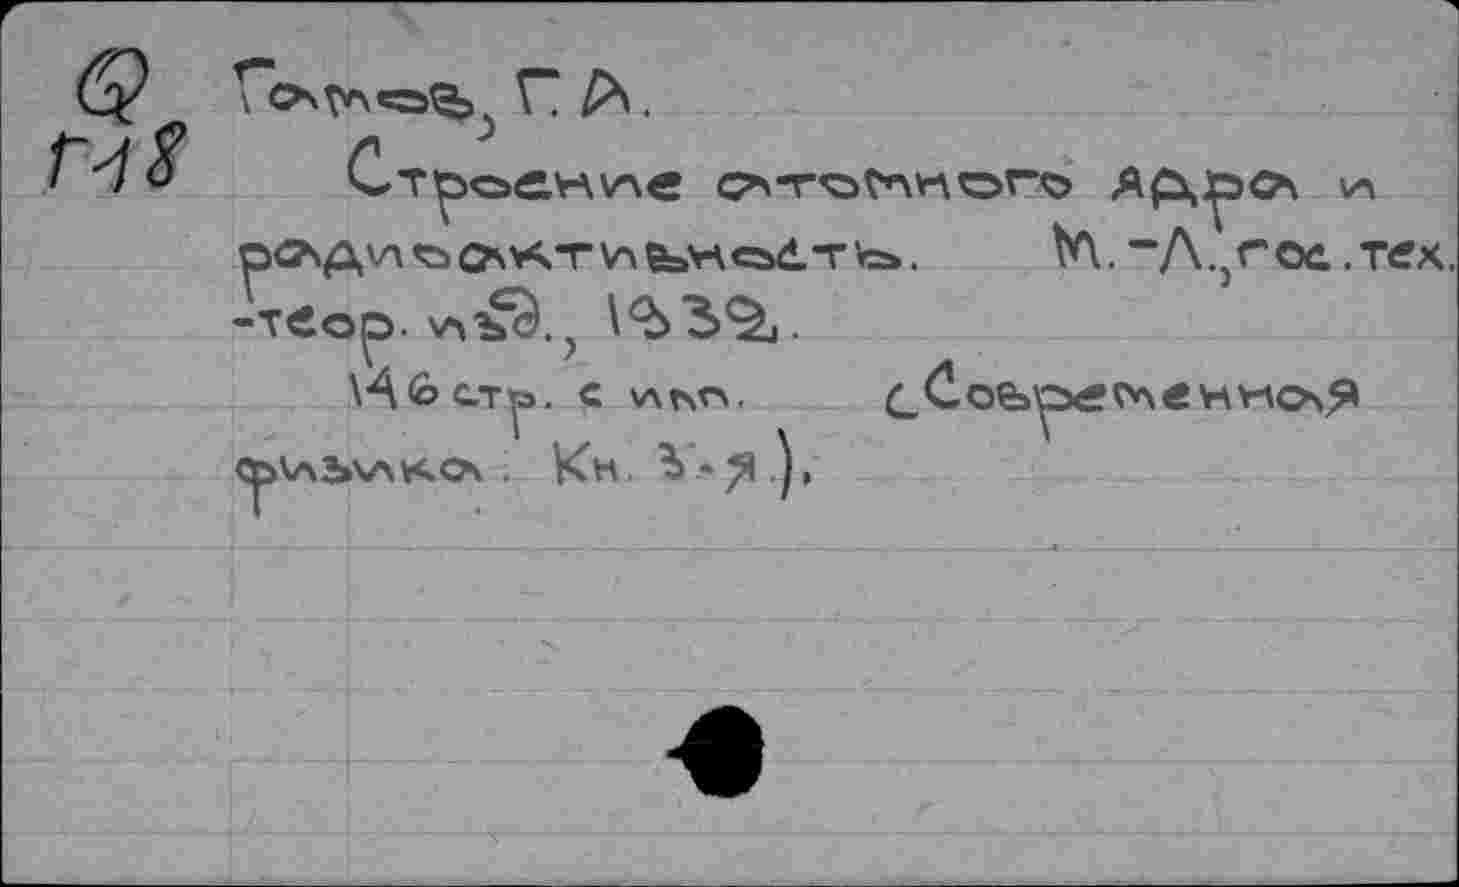 Гамов, Г. А.
Строение атомного ядра и
радиоактивность. М.-Л., гос. тех.
-теор. изд., 1932.
146 стр. с илл. (Современная
физика. Кн. 3-я).